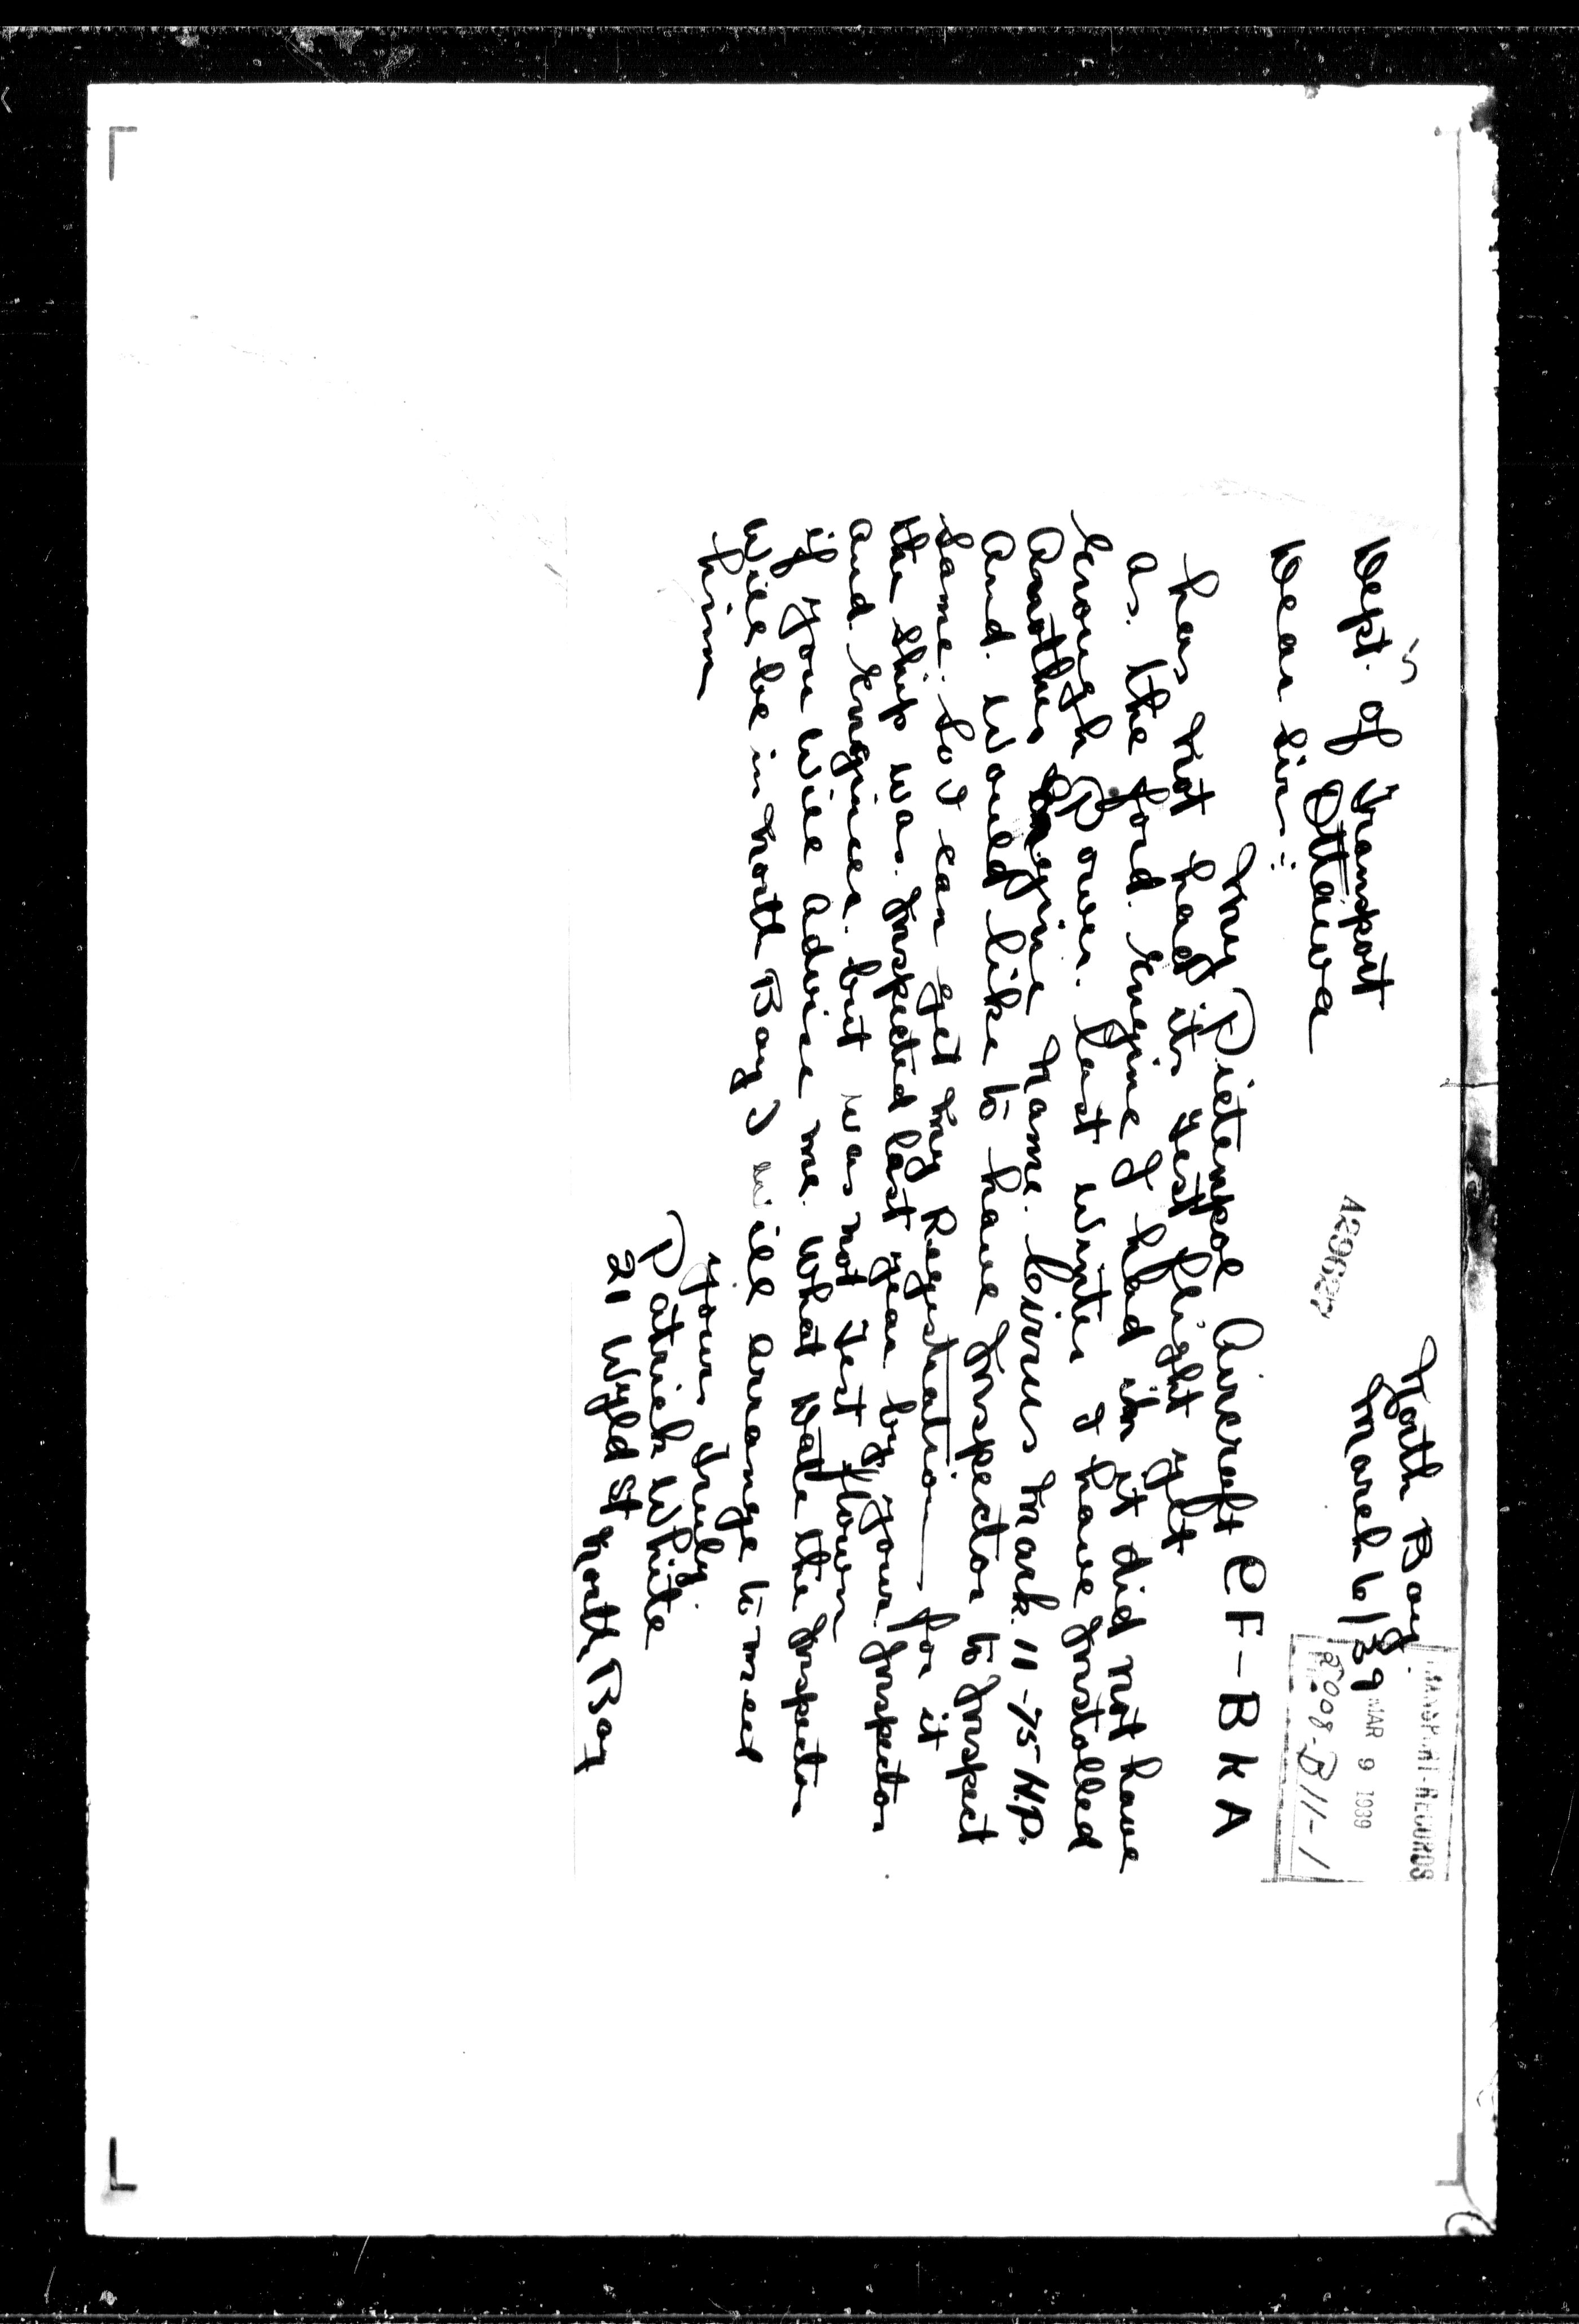 North Bay.
March 6/39
TRANSPORT-RECORDS
MAR 9 1939
5008-B11-1
A29627
Dept. of Transport
Ottawa
Dear Sir:
My Pietenpol Aircraft CF-BKA
has not had its Test flight yet
as. the Ford. Engine I had in it did not have
Enough Power. last Winter I have Installed
Another Engine Name. Cirrus Mark. 11-75 H.P.
and. Would like to have Inspector to Inspect
same. So I can get my Registration — for it
the ship was. Inspected last year by your. Inspector
and. Engines. but was not Test flown
if you will advise me. What Date the Inspector
will be in North Bay I will arrange to meet
him
Yours Truly.
Patrick White
21 Wyld St North Bay